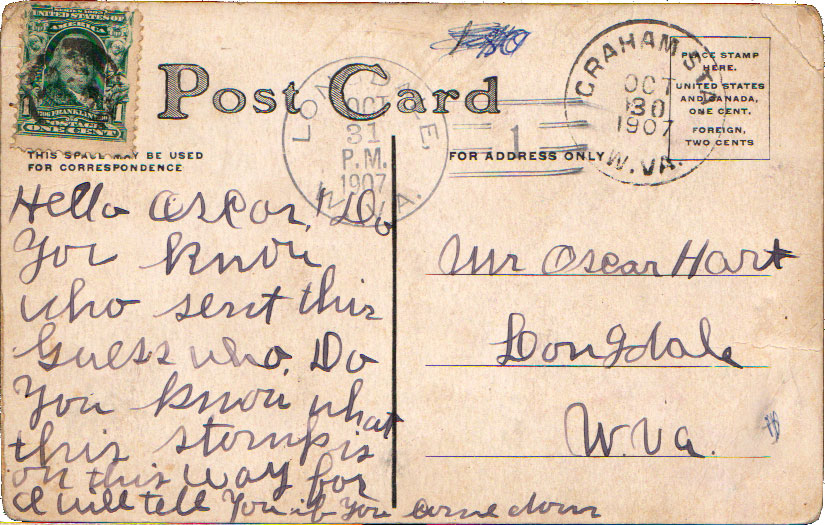 UNITED STATES OF
AMERICA
FRANKLIN
POSTAGE
ONE CENT
Post Card
GRAHAM STA.
OCT
30
1907
W. VA.
PLACE STAMP
HERE.
UNITED STATES
AND CANADA,
ONE CENT.
FOREIGN,
TWO CENTS
OCT
31
P.M.
1907
1
THIS SPACE MAY BE USED
FOR CORRESPONDENCE
FOR ADDRESS ONLY
Hello Oscar, Do
You know
who sent this
Guess who. Do
You know what
this stamp is
on this way for
I will tell You if You come down
Mr Oscar Hart
Longdale
W. Va.